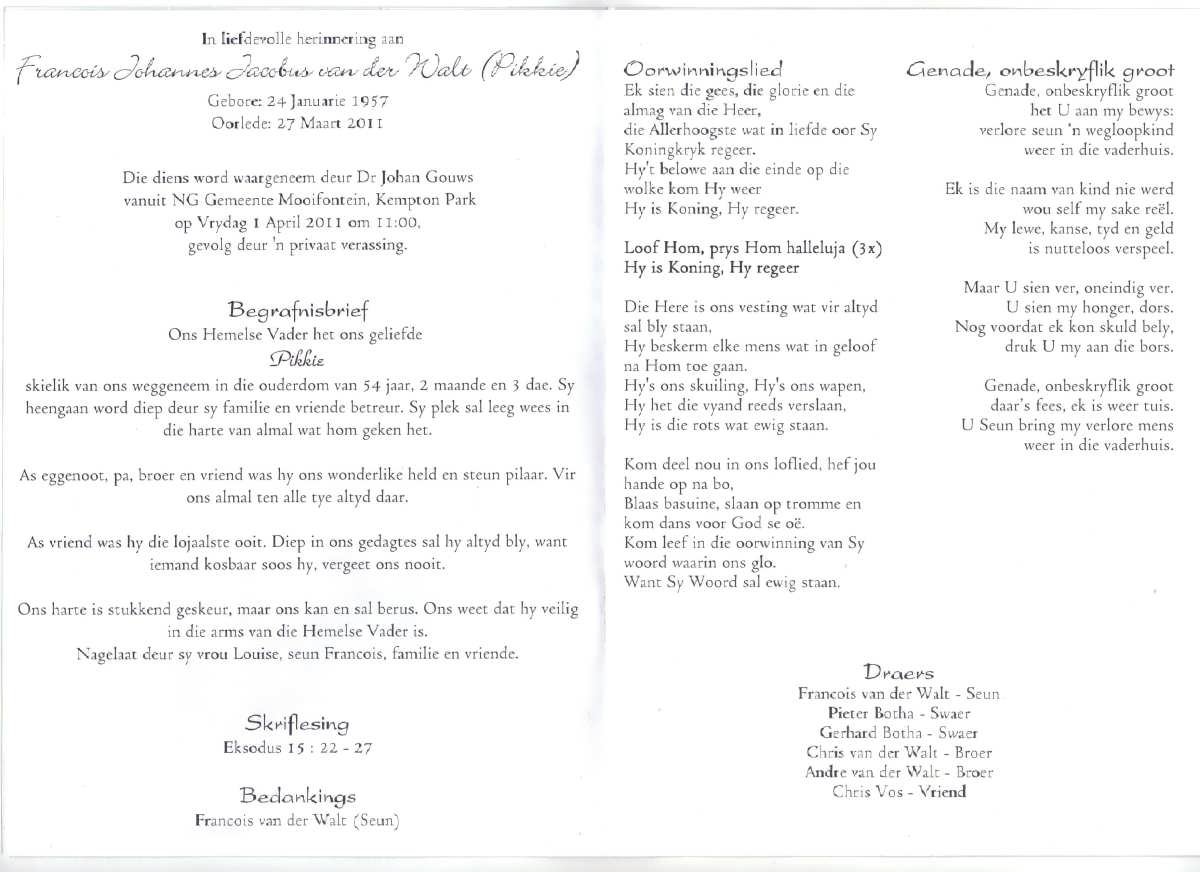 In liefdevolle herinnering aan
Francois Johannes Jacobus van der Walt (Pikkie)
Gebore: 24 Januarie 1957
Oorlede: 27 Maart 2011
Die diens word waargeneem deur Dr Johan Gouws
vanuit NG Gemeente Mooifontein, Kempton Park
op Vrydag 1 April 2011 om 11:00,
gevolg deur 'n privaat verassing.
Begrafnisbrief
Ons Hemelse Vader het ons geliefde
Pikkie
skielik van ons weggeneem in die ouderdom van 54 jaar, 2 maande en 3 dae. Sy
heengaan word diep deur sy familie en vriende betreur. Sy plek sal leeg wees in
die harte van almal wat hom geken het.
As eggenoot, pa, broer en vriend was hy ons wonderlike held en steun pilaar. Vir
ons almal ten alle tye altyd daar.
As vriend was hy die lojaalste ooit. Diep in ons gedagtes sal hy altyd bly, want
iemand kosbaar soos hy, vergeet ons nooit.
Ons harte is stukkend geskeur, maar ons kan en sal berus. Ons weet dat hy veilig
in die arms van die Hemelse Vader is.
Nagelaat deur sy vrou Louise, seun Francois, familie en vriende.
Skriflesing
Eksodus 15 : 22 - 27
Bedankings
Francois van der Walt (Seun)
Oorwinningslied
Ek sien die gees, die glorie en die
almag van die Heer,
die Allerhoogste wat in liefde oor Sy
Koningkryk regeer.
Hy't belowe aan die einde op die
wolke kom Hy weer
Hy is Koning, Hy regeer.
Loof Hom, prys Hom halleluja (3x)
Hy is Koning, Hy regeer
Die Here is ons vesting wat vir altyd
sal bly staan,
Hy beskerm elke mens wat in geloof
na Hom toe gaan.
Hy's ons skuiling, Hy's ons wapen,
Hy het die vyand reeds verslaan,
Hy is die rots wat ewig staan.
Kom deel nou in ons loflied, hef jou
hande op na bo,
Blaas basuine, slaan op tromme en
kom dans voor God se oë.
Kom leef in die oorwinning van Sy
woord waarin ons glo.
Want Sy Woord sal ewig staan.
Genade, onbeskryflik groot
Genade, onbeskryflik groot
het U aan my bewys:
verlore seun 'n wegloopkind
weer in die vaderhuis.
Ek is die naam van kind nie werd
wou self my sake reël.
My lewe, kanse, tyd en geld
is nutteloos verspeel.
Maar U sien ver, oneindig ver.
U sien my honger, dors.
Nog voordat ek kon skuld bely,
druk U my aan die bors.
Genade, onbeskryflik groot
daar's fees, ek is weer tuis.
U Seun bring my verlore mens
weer in die vaderhuis.
Draers
Francois van der Walt - Seun
Pieter Botha - Swaer
Gerhard Botha - Swaer
Chris van der Walt - Broer
Andre van der Walt - Broer
Chris Vos - Vriend